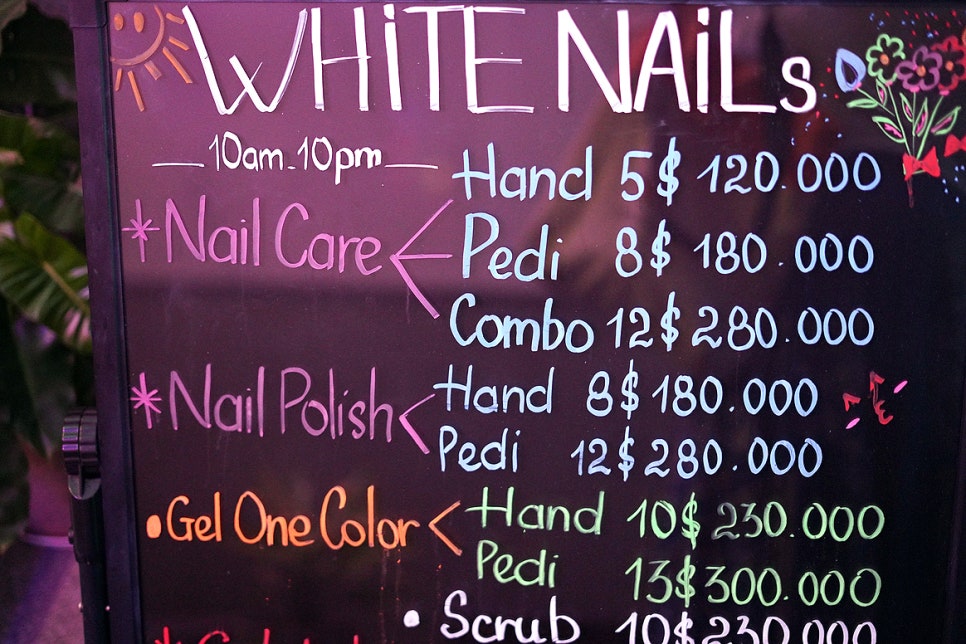 WHiTE NAiLs
10am-10pm
Hand 5$ 120.000
*Nail Care
Pedi 8$ 180.000
Combo 12$ 280.000
*Nail Polish
Hand 8$ 180.000
Pedi 12$ 280.000
•Gel One Color
Hand 10$ 230.000
Pedi 13$ 300.000
• Scrub 10$ 230.000